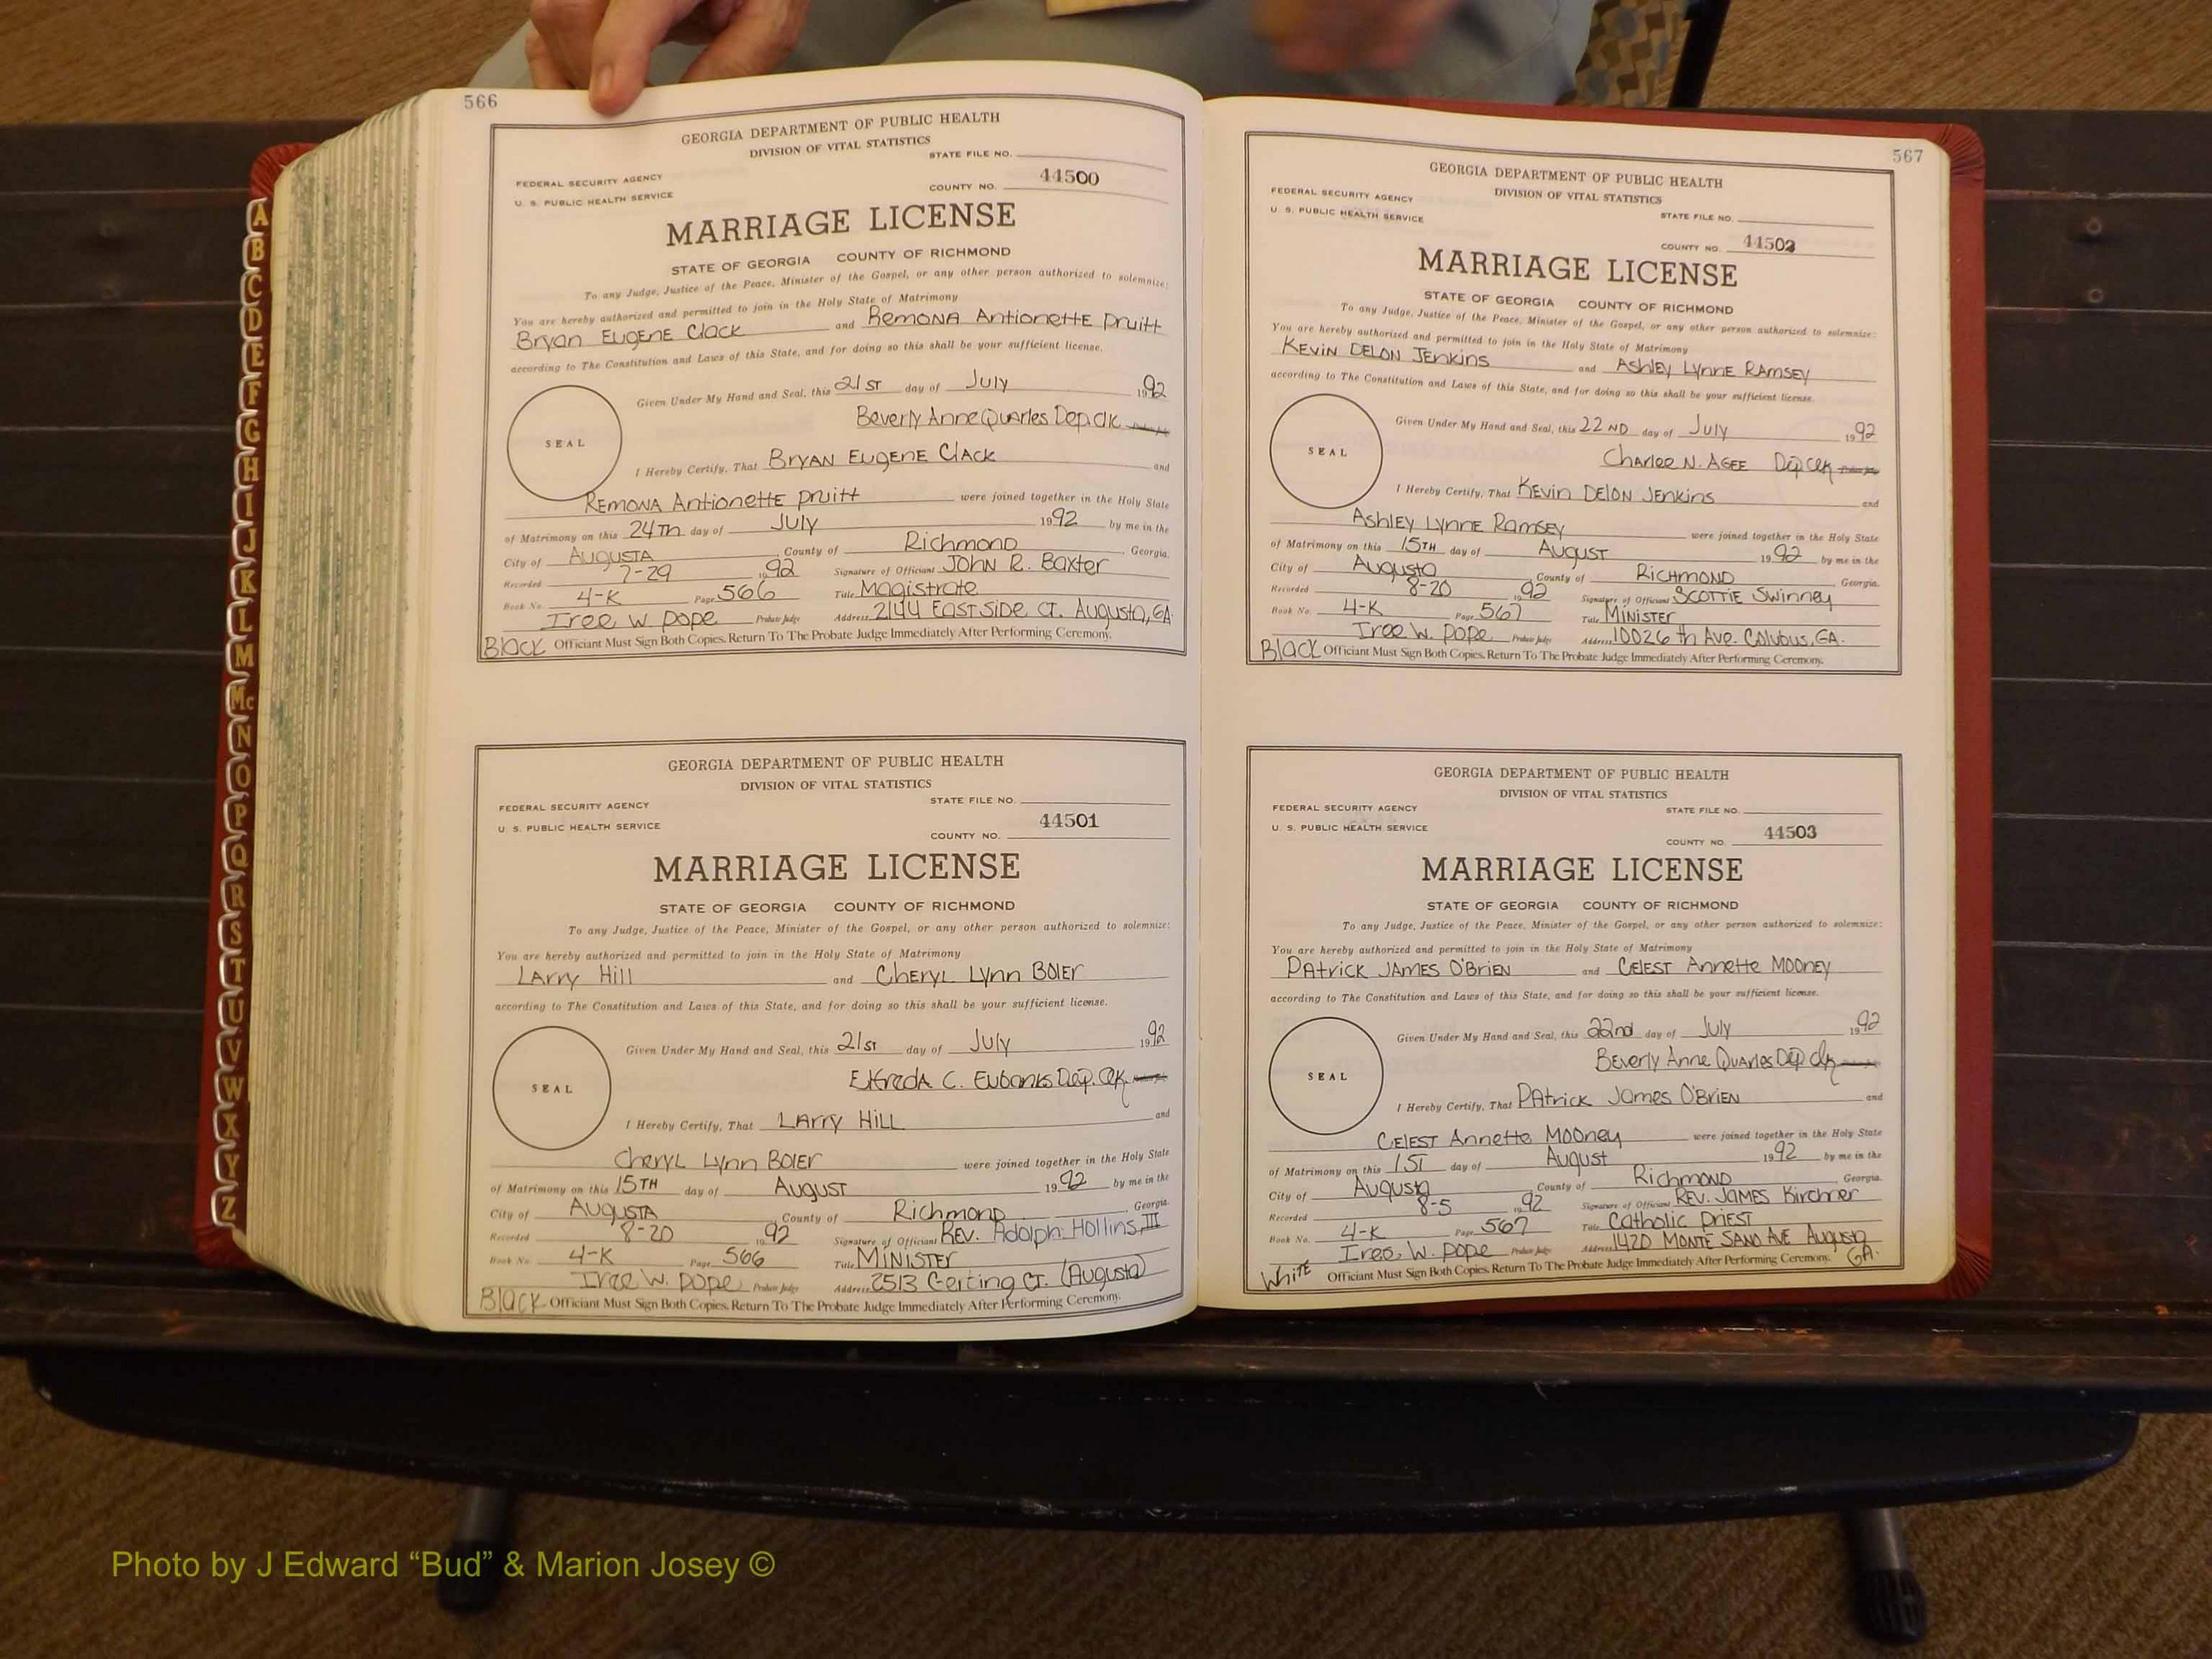 566
GEORGIA DEPARTMENT OF PUBLIC HEALTH
DIVISION OF VITAL STATISTICS
STATE FILE NO.
FEDERAL SECURITY AGENCY
U. S. PUBLIC HEALTH SERVICE
COUNTY NO. 44500
MARRIAGE LICENSE
STATE OF GEORGIA COUNTY OF RICHMOND
To any Judge, Justice of the Peace, Minister of the Gospel, or any other person authorized to solemnize:
You are hereby authorized and permitted to join in the Holy State of Matrimony
Bryan EUGENE Clack and REMONA AntionettE Pruitt
according to The Constitution and Laws of this State, and for doing so this shall be your sufficient license.
Given Under My Hand and Seal, this 21ST day of July 1992
Beverly Anne Quarles Dep. clk
SEAL
I Hereby Certify, That BRYAN EUGENE ClACK and
REMONA AntionettE Pruitt were joined together in the Holy State
of Matrimony on this 24TH day of July 1992 by me in the
City of AUGUSTA, County of Richmond, Georgia.
Recorded 7-29 1992 Signature of Officiant John R. Baxter
Book No. 4-K Page 566 Title Magistrate
Iree W. Pope Probate Judge Address 2144 East Side Ct. Augusta, GA.
Black Officiant Must Sign Both Copies. Return To The Probate Judge Immediately After Performing Ceremony.
GEORGIA DEPARTMENT OF PUBLIC HEALTH
DIVISION OF VITAL STATISTICS
FEDERAL SECURITY AGENCY STATE FILE NO.
U. S. PUBLIC HEALTH SERVICE COUNTY NO. 44501
MARRIAGE LICENSE
STATE OF GEORGIA COUNTY OF RICHMOND
To any Judge, Justice of the Peace, Minister of the Gospel, or any other person authorized to solemnize:
You are hereby authorized and permitted to join in the Holy State of Matrimony
LArry Hill and Cheryl Lynn BOIER
according to The Constitution and Laws of this State, and for doing so this shall be your sufficient license.
Given Under My Hand and Seal, this 21ST day of July 1992
ElfredA C. Eubanks Dep. Clk
SEAL
I Hereby Certify, That LArry HiLL and
Cheryl Lynn BOIER were joined together in the Holy State
of Matrimony on this 15TH day of AUGUST 1992 by me in the
City of AUGUSTA, County of Richmond, Georgia.
Recorded 8-20 1992 Signature of Officiant REV. Adolph Hollins, III
Book No. 4-K Page 566 Title MINISTER
Iree W. Pope Probate Judge Address 2513 Gerting CT. (Augusta)
Black Officiant Must Sign Both Copies. Return To The Probate Judge Immediately After Performing Ceremony.
567
GEORGIA DEPARTMENT OF PUBLIC HEALTH
DIVISION OF VITAL STATISTICS
FEDERAL SECURITY AGENCY
U. S. PUBLIC HEALTH SERVICE STATE FILE NO.
COUNTY NO. 44502
MARRIAGE LICENSE
STATE OF GEORGIA COUNTY OF RICHMOND
To any Judge, Justice of the Peace, Minister of the Gospel, or any other person authorized to solemnize:
You are hereby authorized and permitted to join in the Holy State of Matrimony
KEVIN DELON JENKINS and AshlEy LYNNE RAMSEY
according to The Constitution and Laws of this State, and for doing so this shall be your sufficient license.
Given Under My Hand and Seal, this 22ND day of July 1992
Charlee N. AGEE Dep Clk
SEAL
I Hereby Certify, That KEvin DElON JENKINS and
AshlEy LYNNE RamsEY were joined together in the Holy State
of Matrimony on this 15TH day of AUGUST 1992 by me in the
City of Augusta, County of RICHMOND, Georgia.
Recorded 8-20 1992 Signature of Officiant SCOTTIE Swinney
Book No. 4-K Page 567 Title MINISTER
Iree W. Pope Probate Judge Address 10026 th Ave. Colubus, GA.
Black Officiant Must Sign Both Copies. Return To The Probate Judge Immediately After Performing Ceremony.
GEORGIA DEPARTMENT OF PUBLIC HEALTH
DIVISION OF VITAL STATISTICS
FEDERAL SECURITY AGENCY STATE FILE NO.
U. S. PUBLIC HEALTH SERVICE COUNTY NO. 44503
MARRIAGE LICENSE
STATE OF GEORGIA COUNTY OF RICHMOND
To any Judge, Justice of the Peace, Minister of the Gospel, or any other person authorized to solemnize:
You are hereby authorized and permitted to join in the Holy State of Matrimony
PAtrick JAMES O'BRIEN and CElEST Annette MOONEY
according to The Constitution and Laws of this State, and for doing so this shall be your sufficient license.
Given Under My Hand and Seal, this 22nd day of July 1992
Beverly Anne Quarles Dep clk
SEAL
I Hereby Certify, That PAtrick James O'BriEN and
CElEST Annette MOONEY were joined together in the Holy State
of Matrimony on this 1ST day of August 1992 by me in the
City of Augusta, County of Richmond, Georgia.
Recorded 8-5 1992 Signature of Officiant REV. JAMES Kirchner
Book No. 4-K Page 567 Title Catholic PriEST
Iree W. Pope Probate Judge Address 1420 MONTE SANO AVE Augusta GA.
White Officiant Must Sign Both Copies. Return To The Probate Judge Immediately After Performing Ceremony.
A
B
C
D
E
F
G
H
I
J
K
L
M
Mc
N
O
P
Q
R
S
T
U
V
W
X
Y
Z
Photo by J Edward “Bud” & Marion Josey ©